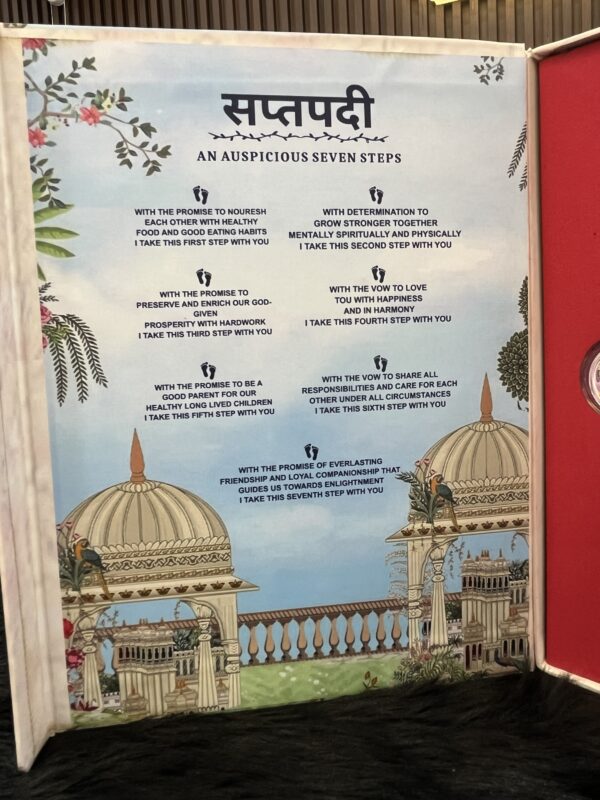 सप्तपदी
AN AUSPICIOUS SEVEN STEPS
WITH THE PROMISE TO NOURESH
EACH OTHER WITH HEALTHY
FOOD AND GOOD EATING HABITS
I TAKE THIS FIRST STEP WITH YOU
WITH DETERMINATION TO
GROW STRONGER TOGETHER
MENTALLY SPIRITUALLY AND PHYSICALLY
I TAKE THIS SECOND STEP WITH YOU
WITH THE PROMISE TO
PRESERVE AND ENRICH OUR GOD-
GIVEN
PROSPERITY WITH HARDWORK
I TAKE THIS THIRD STEP WITH YOU
WITH THE VOW TO LOVE
TOU WITH HAPPINESS
AND IN HARMONY
I TAKE THIS FOURTH STEP WITH YOU
WITH THE PROMISE TO BE A
GOOD PARENT FOR OUR
HEALTHY LONG LIVED CHILDREN
I TAKE THIS FIFTH STEP WITH YOU
WITH THE VOW TO SHARE ALL
RESPONSIBILITIES AND CARE FOR EACH
OTHER UNDER ALL CIRCUMSTANCES
I TAKE THIS SIXTH STEP WITH YOU
WITH THE PROMISE OF EVERLASTING
FRIENDSHIP AND LOYAL COMPANIONSHIP THAT
GUIDES US TOWARDS ENLIGHTNMENT
I TAKE THIS SEVENTH STEP WITH YOU